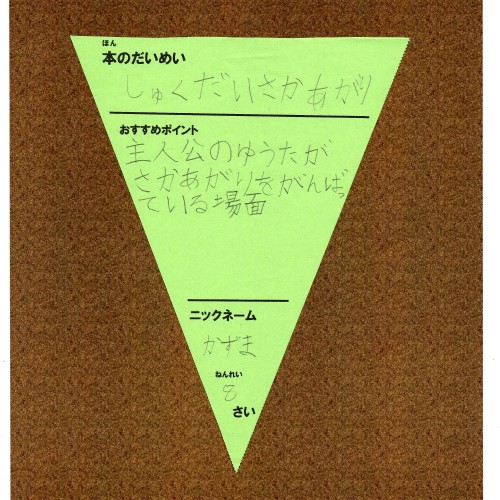 ほん
本のだいめい
しゅくだいさかあがり
おすすめポイント
主人公のゆうたが
さかあがりをがんばっ
ている場面
ニックネーム
かずま
ねんれい
8
さい